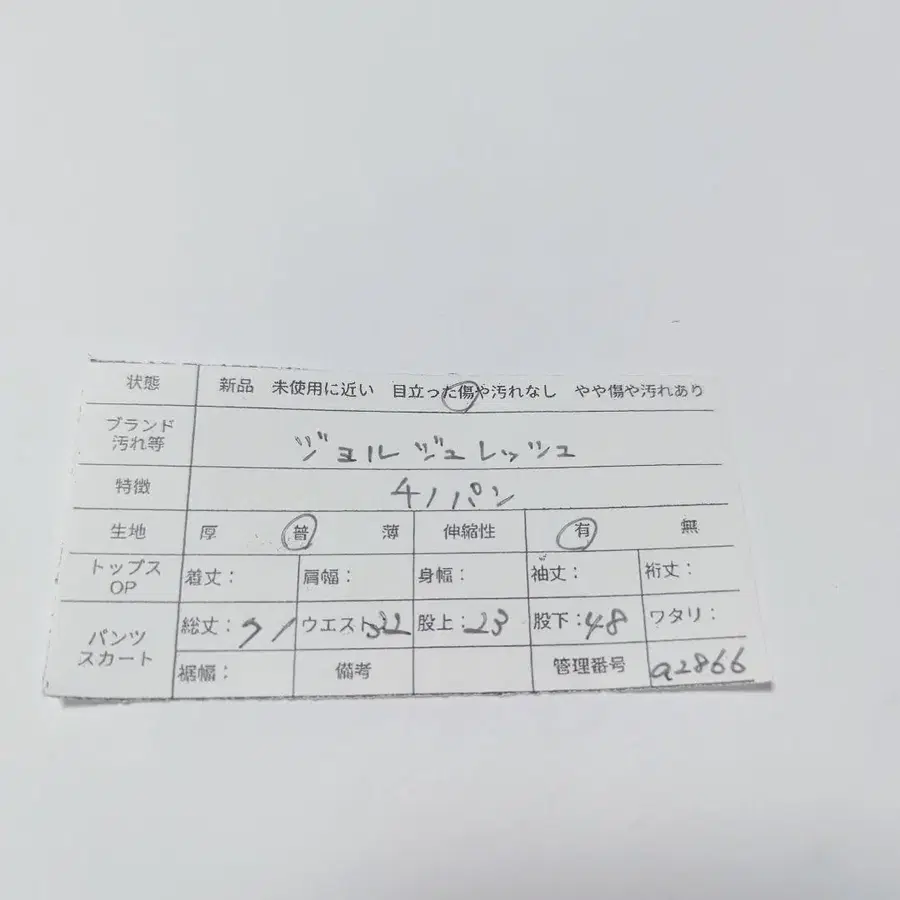 状態 新品 未使用に近い 目立った傷や汚れなし やや傷や汚れあり
ブランド
汚れ等 ジョルジュレッシュ
特徴 チノパン
生地 厚 普 薄 伸縮性 有 無
トップス
OP 着丈: 肩幅: 身幅: 袖丈: 裄丈:
パンツ
スカート 総丈:71 ウエスト32 股上:23 股下:48 ワタリ:
裾幅: 備考 管理番号 a2866